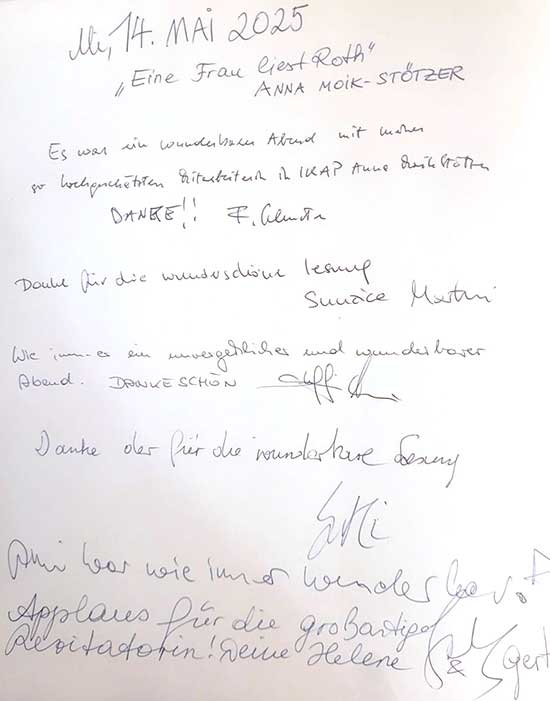 Mi, 14. MAI 2025
„Eine Frau liest Roth"
ANNA MOIK-STÖTZER
Es war ein wunderbarer Abend mit meiner
so hochgeschätzten Mitarbeiterin in Anna Moik-Stötzer
DANKE!!
Danke für die wunderschöne Lesung
Martini
Wie immer ein unvergeßlicher und wunderbarer
Abend. DANKESCHÖN
Danke dir für die wunderbare Lesung
war wie immer wunderbar!
Applaus für die großartige
Rezitatorin! Deine Helene &